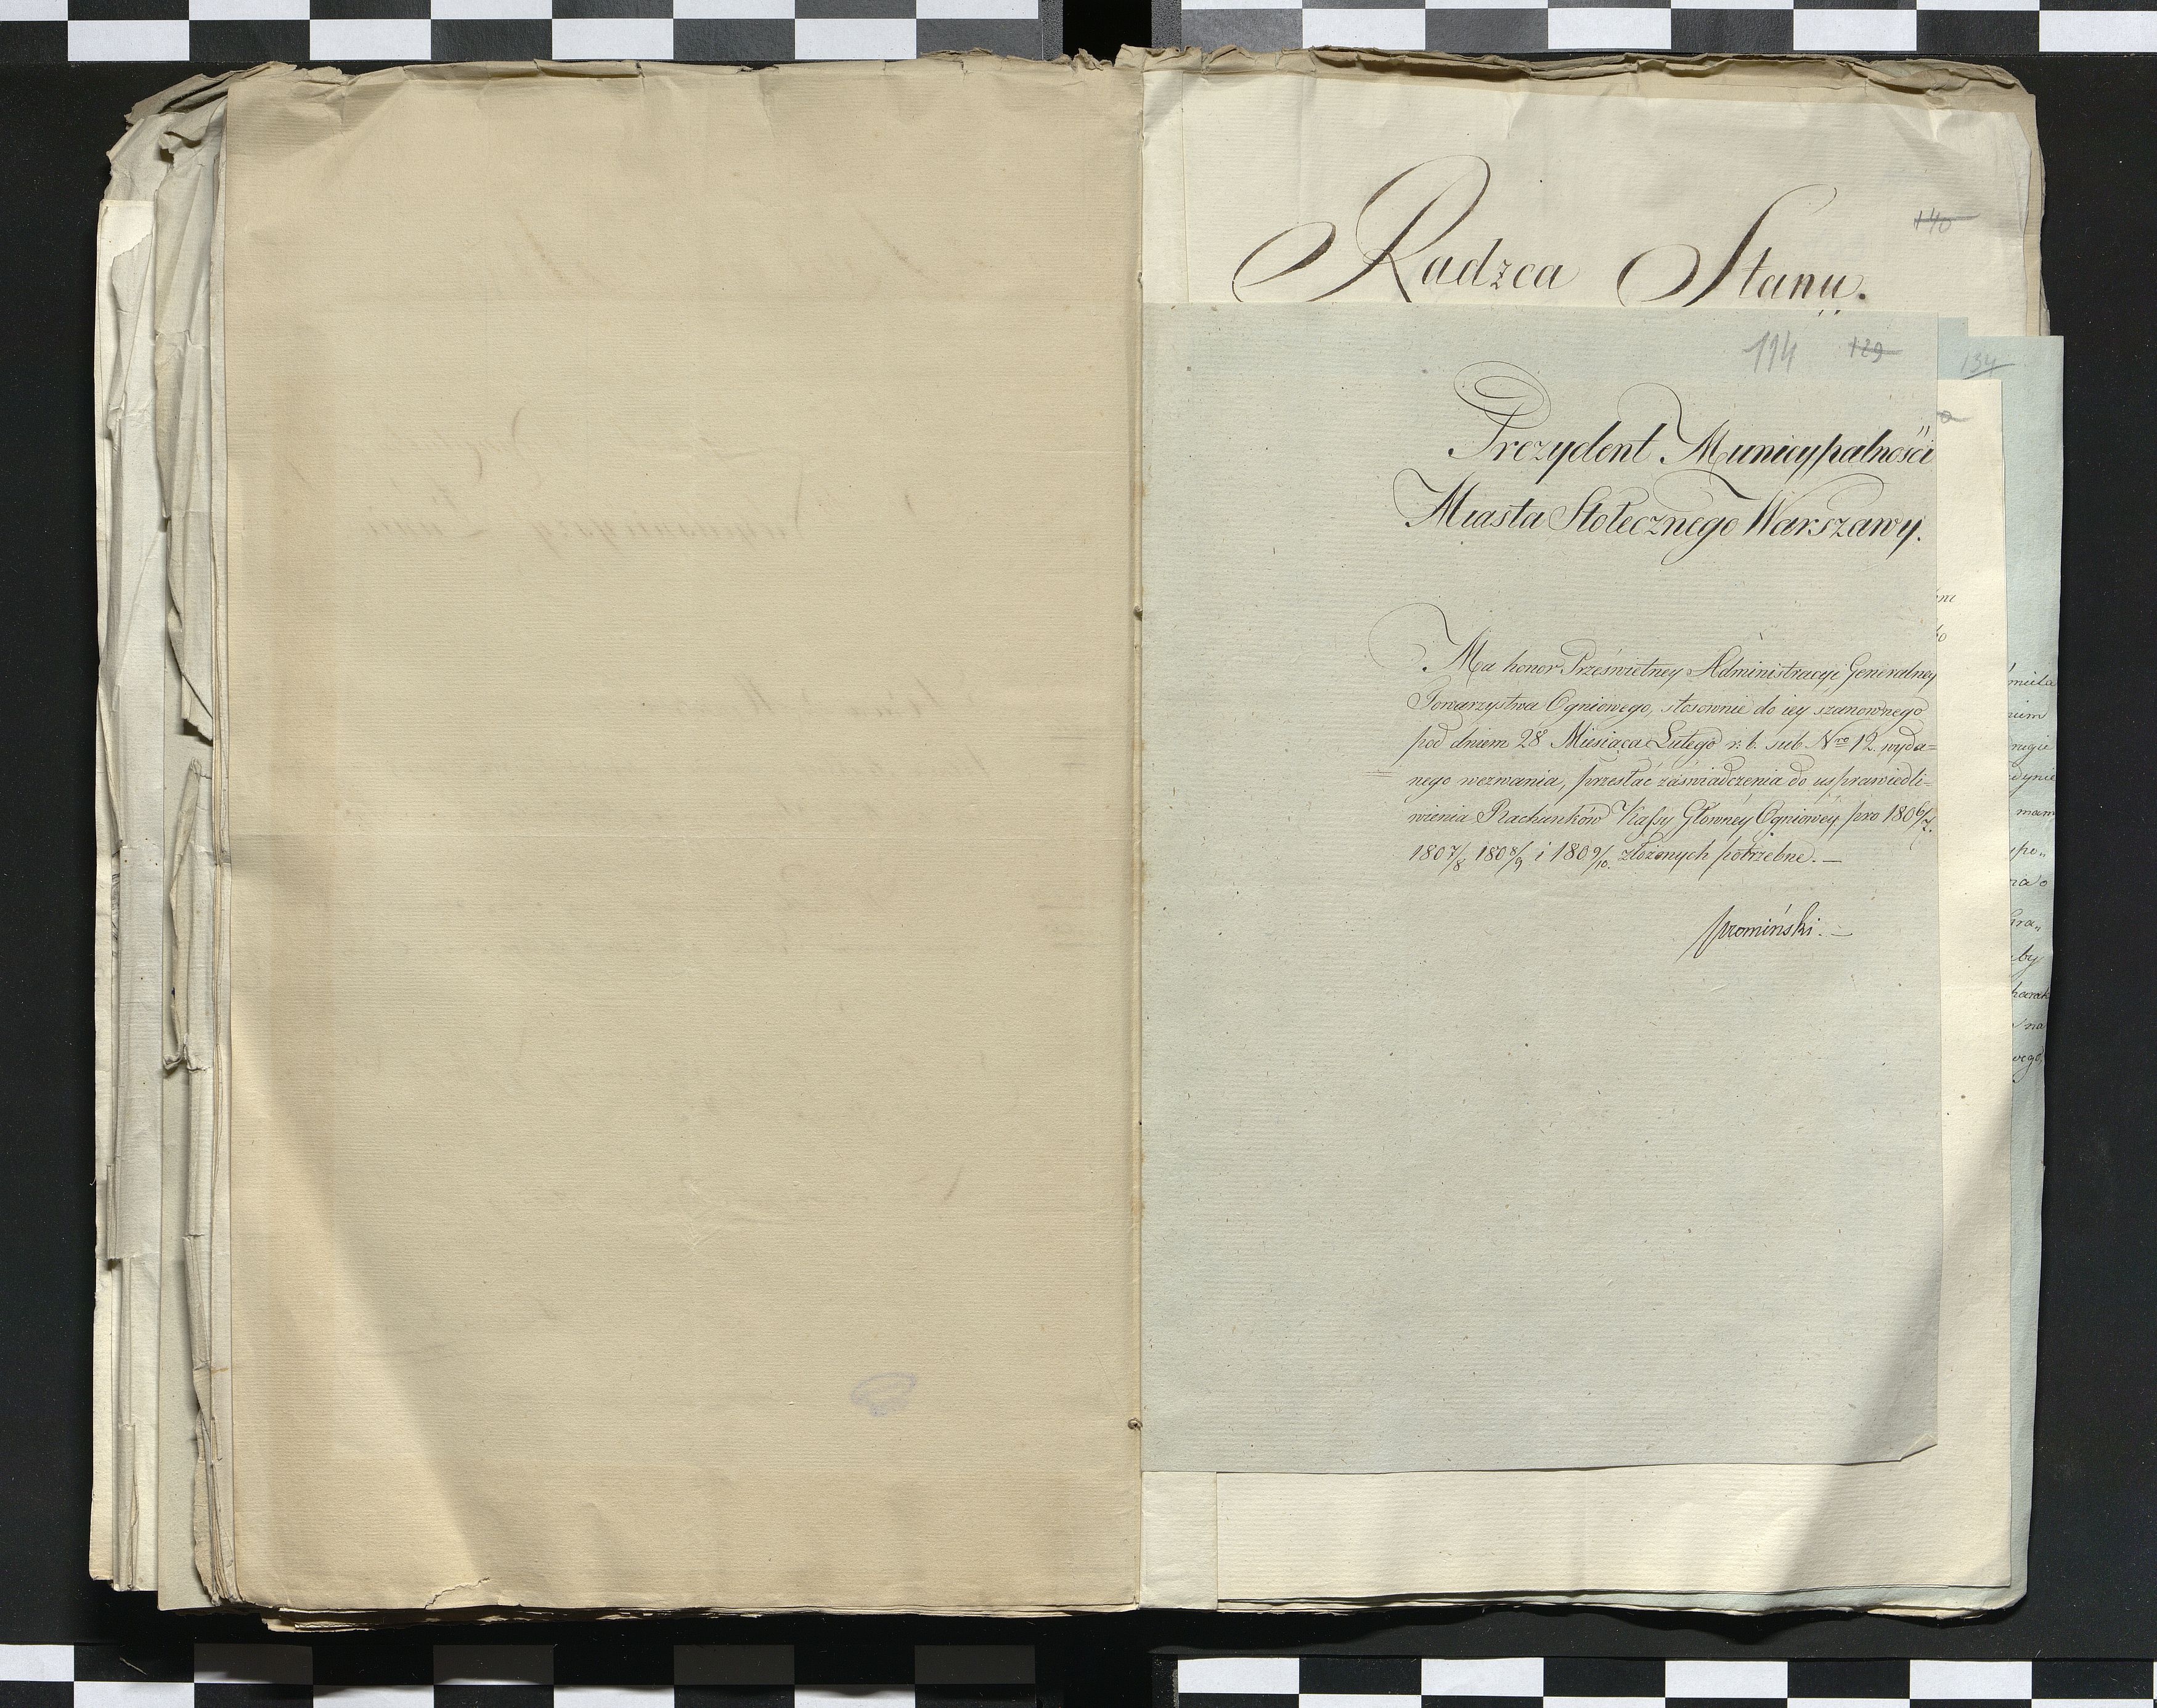 140
Radzca Stanu.
114 129
134
Prezydent Municypalności
Miasta Stołecznego Warszawy.
Ma honor Prześwietney Administracyi Generalney
Towarzystwa Ogniowego, stosownie do iey szanownego
pod dniem 28 Miesiąca Lutego r: b. sub Nro 12. wyda=
nego wezwania, przesłać zaświadczenia do usprawiedli=
wienia Rachunków Kassy Głowney Ogniowey, pro 1806/7.
1807/8 1808/9 i 1809/10. złożonych potrzebne. —
mam
by
na